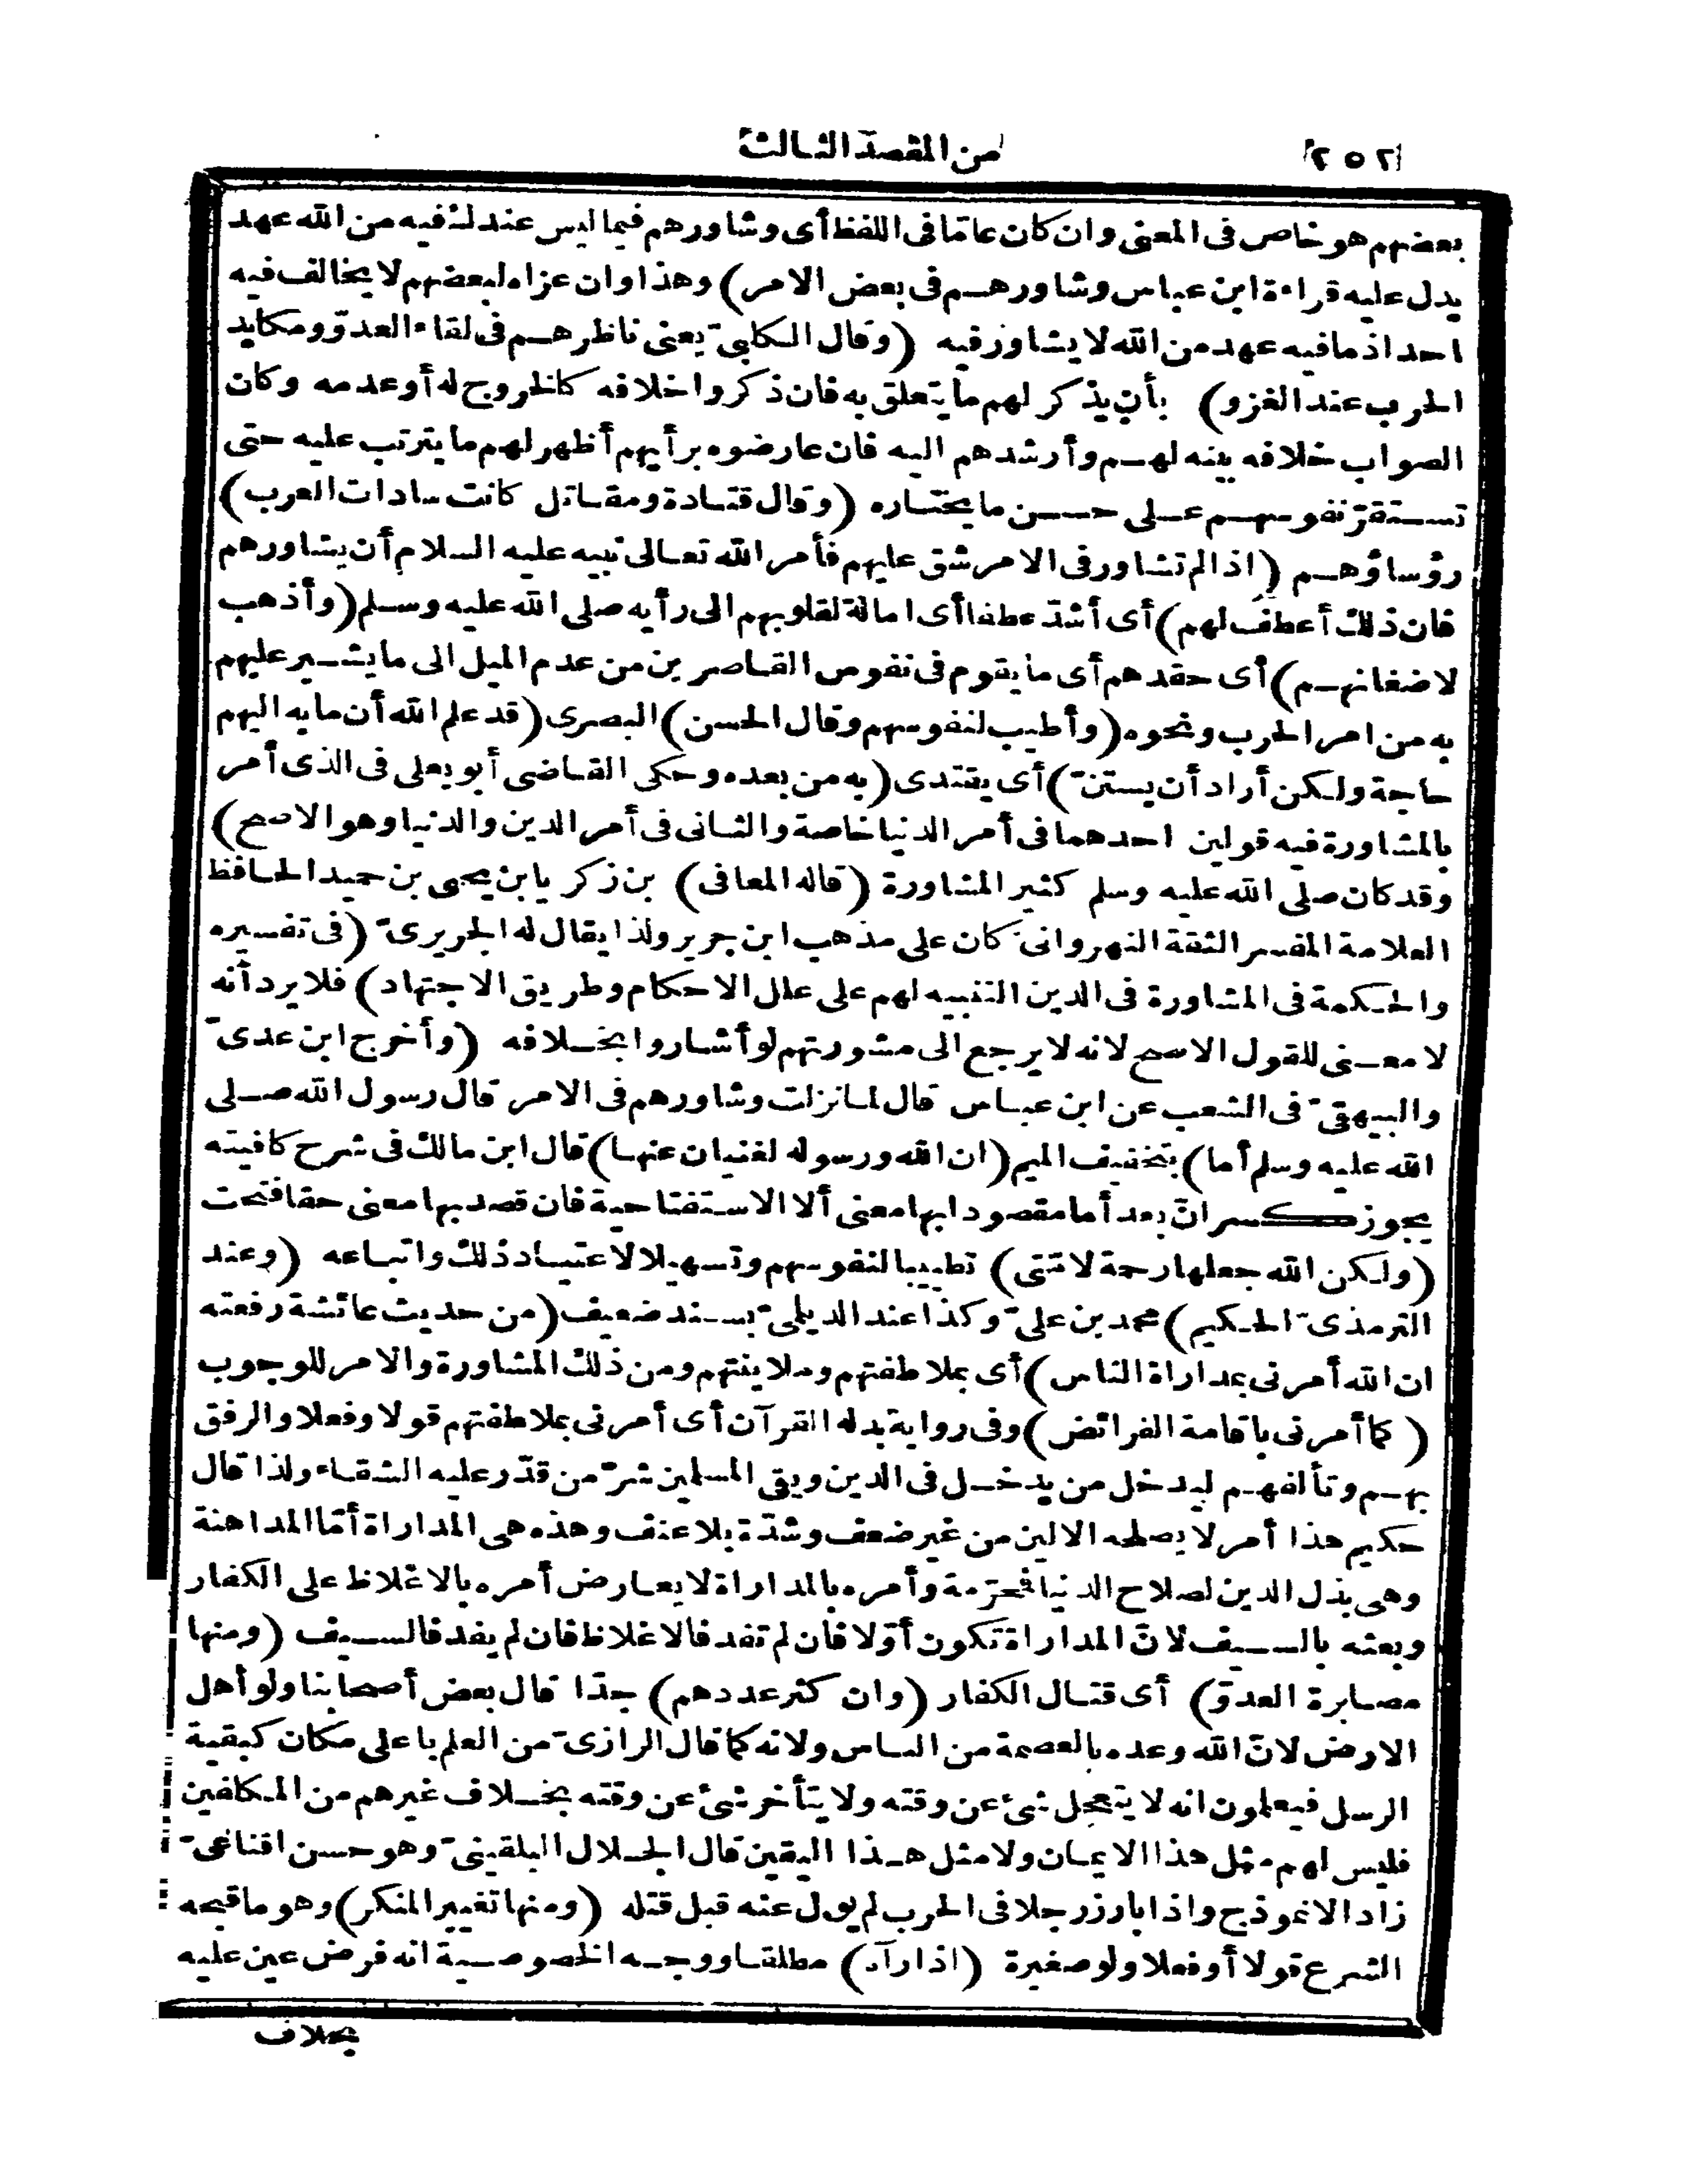 ٢٥٢
من المقصد الثالث
بعضهم هو خاص فى المعنى وان كان عامّا فى اللفظ أى وشاورهم فيما ليس عندك فيه من الله عهد
يدل عليه قراءة ابن عباس وشاورهم فى بعض الامر) وهذا وان عزاه لبعضهم لا يخالف فيه
احد اذ ما فيه عهد من الله لا يشاور فيه (وقال الكلبىّ يعنى ناظرهم فى لقاء العدوّ ومكايد
الحرب عند الغزو) بأن يذكر لهم ما يتعلق به فان ذكروا خلافه كالخروج له أو عدمه وكان
الصواب خلافه بينه لهم وأرشدهم اليه فان عارضوه برأيهم أظهر لهم ما يترتب عليه حتى
تستقرّ نفوسهم على حسن ما يختاره (وقال قتادة ومقاتل كانت سادات العرب)
رؤساؤهم (اذا لم تشاور فى الامر شق عليهم فأمر الله تعالى نبيه عليه السلام أن يشاورهم
فان ذلك أعطف لهم) أى أشدّ عطفا أى امالة لقلوبهم الى رأيه صلى الله عليه وسلم (وأذهب
لاضغانهم) أى حقدهم أى ما يقوم فى نفوس القاصرين من عدم الميل الى ما يشير عليهم
به من امر الحرب ونحوه (وأطيب لنفوسهم وقال الحسن) البصرى (قد علم الله أن ما به اليهم
حاجة ولكن أراد أن يستنّ) أى يقتدى (به من بعده وحكى القاضى أبو يعلى فى الذى أمر
بالمشاورة فيه قولين احدهما فى أمر الدنيا خاصة والثانى فى أمر الدين والدنيا وهو الاصح)
وقد كان صلى الله عليه وسلم كثير المشاورة (قاله المعافى) بن زكريا بن يحيى بن حميد الحافظ
العلامة المفسر الثقة النهروانىّ كان على مذهب ابن جرير ولذا يقال له الجريرىّ (فى تفسيره
والحكمة فى المشاورة فى الدين التنبيه لهم على علل الاحكام وطريق الاجتهاد) فلا يرد أنه
لا معنى للقول الاصح لانه لا يرجع الى مشورتهم لو أشاروا بخلافه (وأخرج ابن عدىّ
والبيهقىّ فى الشعب عن ابن عباس قال لما نزلت وشاورهم فى الامر قال رسول الله صلى
الله عليه وسلم أما) بتخفيف الميم (ان الله ورسوله لغنيان عنها) قال ابن مالك فى شرح كافيته
يجوز كسر انّ بعد أما مقصودا بها معنى ألا الاستفتاحية فان قصد بها معنى حقا فتحت
(ولكن الله جعلها رحمة لامّتى) تطييبا لنفوسهم وتسهيلا لاعتياد ذلك واتباعه (وعند
الترمذىّ الحكيم) محمد بن علىّ وكذا عند الديلمىّ بسند ضعيف (من حديث عائشة رفعته
ان الله أمرنى بمداراة الناس) أى بملاطفتهم وملاينتهم ومن ذلك المشاورة والامر للوجوب
(كما أمرنى باقامة الفرائض) وفى رواية بدله القرآن أى أمرنى بملاطفتهم قولا وفعلا والرفق
بهم وتألفهم ليدخل من يدخل فى الدين ويقى المسلمين شرّ من قدّر عليه الشقاء ولذا قال
حكيم هذا أمر لا يصلحه الا لين من غير ضعف وشدّة بلا عنف وهذه هى المداراة أمّا المداهنة
وهى بذل الدين لصلاح الدنيا فمحرّمة وأمره بالمداراة لا يعارض أمره بالاغلاظ على الكفار
وبعثه بالسيف لانّ المداراة تكون أوّلا فان لم تفد فالاغلاظ فان لم يفد فالسيف (ومنها
مصابرة العدوّ) أى قتال الكفار (وان كثر عددهم) جدّا قال بعض أصحابنا ولو أهل
الارض لانّ الله وعده بالعصمة من الناس ولانه كما قال الرازىّ من العلم باعلى مكان كبقية
الرسل فيعلمون انه لا يتعجل شئ عن وقته ولا يتأخر شئ عن وقته بخلاف غيرهم من المكلفين
فليس لهم مثل هذا الايمان ولا مثل هذا اليقين قال الجلال البلقينىّ وهو حسن اقناعىّ
زاد الانموذج واذا بارز رجلا فى الحرب لم يول عنه قبل قتله (ومنها تغيير المنكر) وهو ما قبحه
الشرع قولا أو فعلا ولو صغيرة (اذا رآه) مطلقا ووجه الخصوصية انه فرض عين عليه
بخلاف